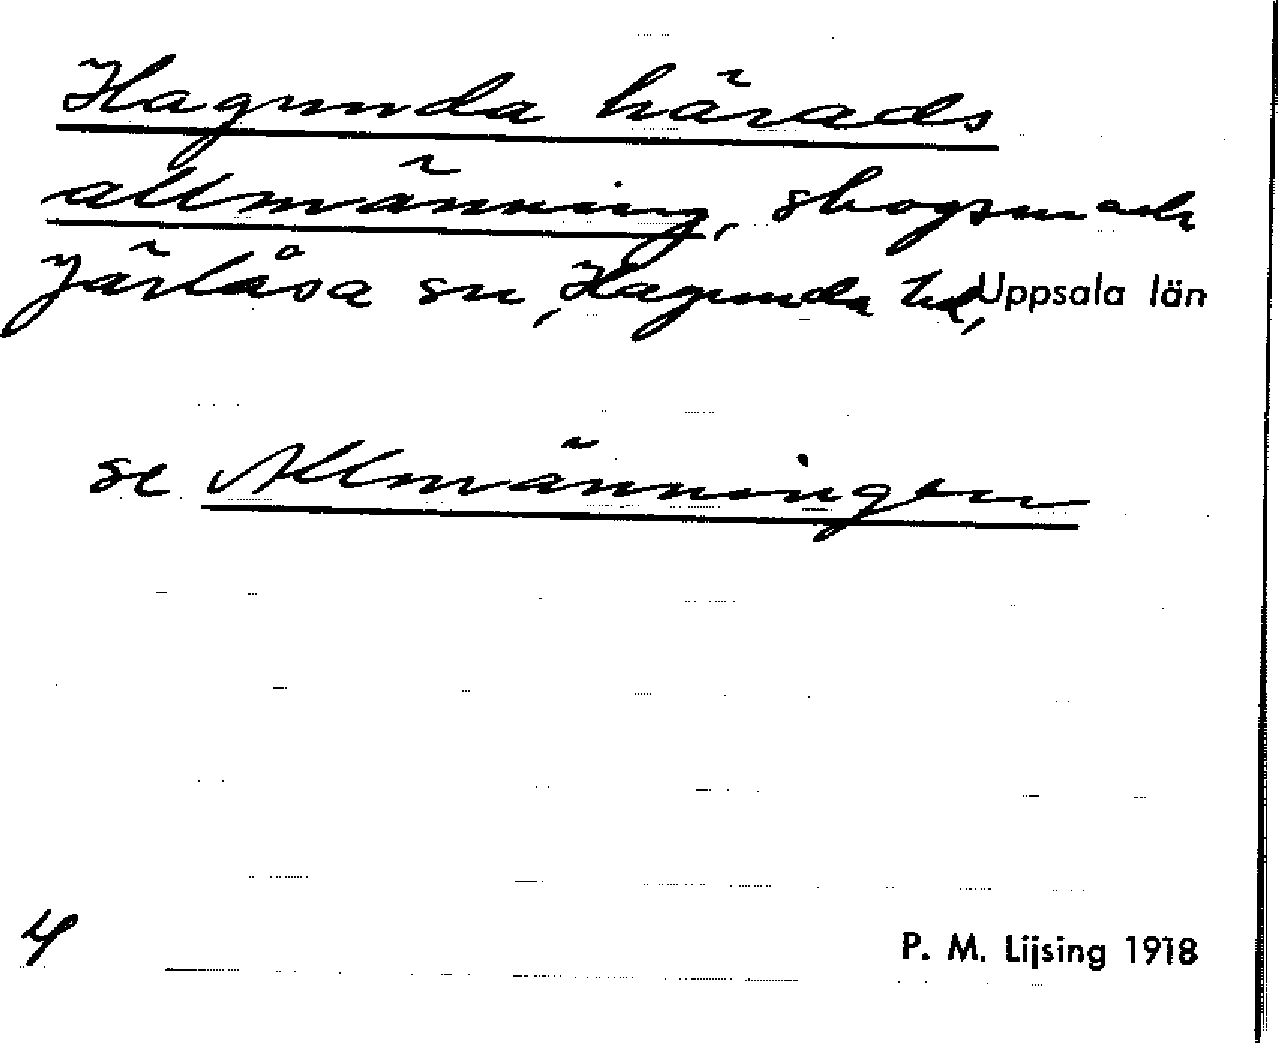 Hagunda härads
allmänning, skogsmark
Järlåsa sn, Hagunda hd, Uppsala län
se Allmänningen
4 P. M. Lijsing 1918